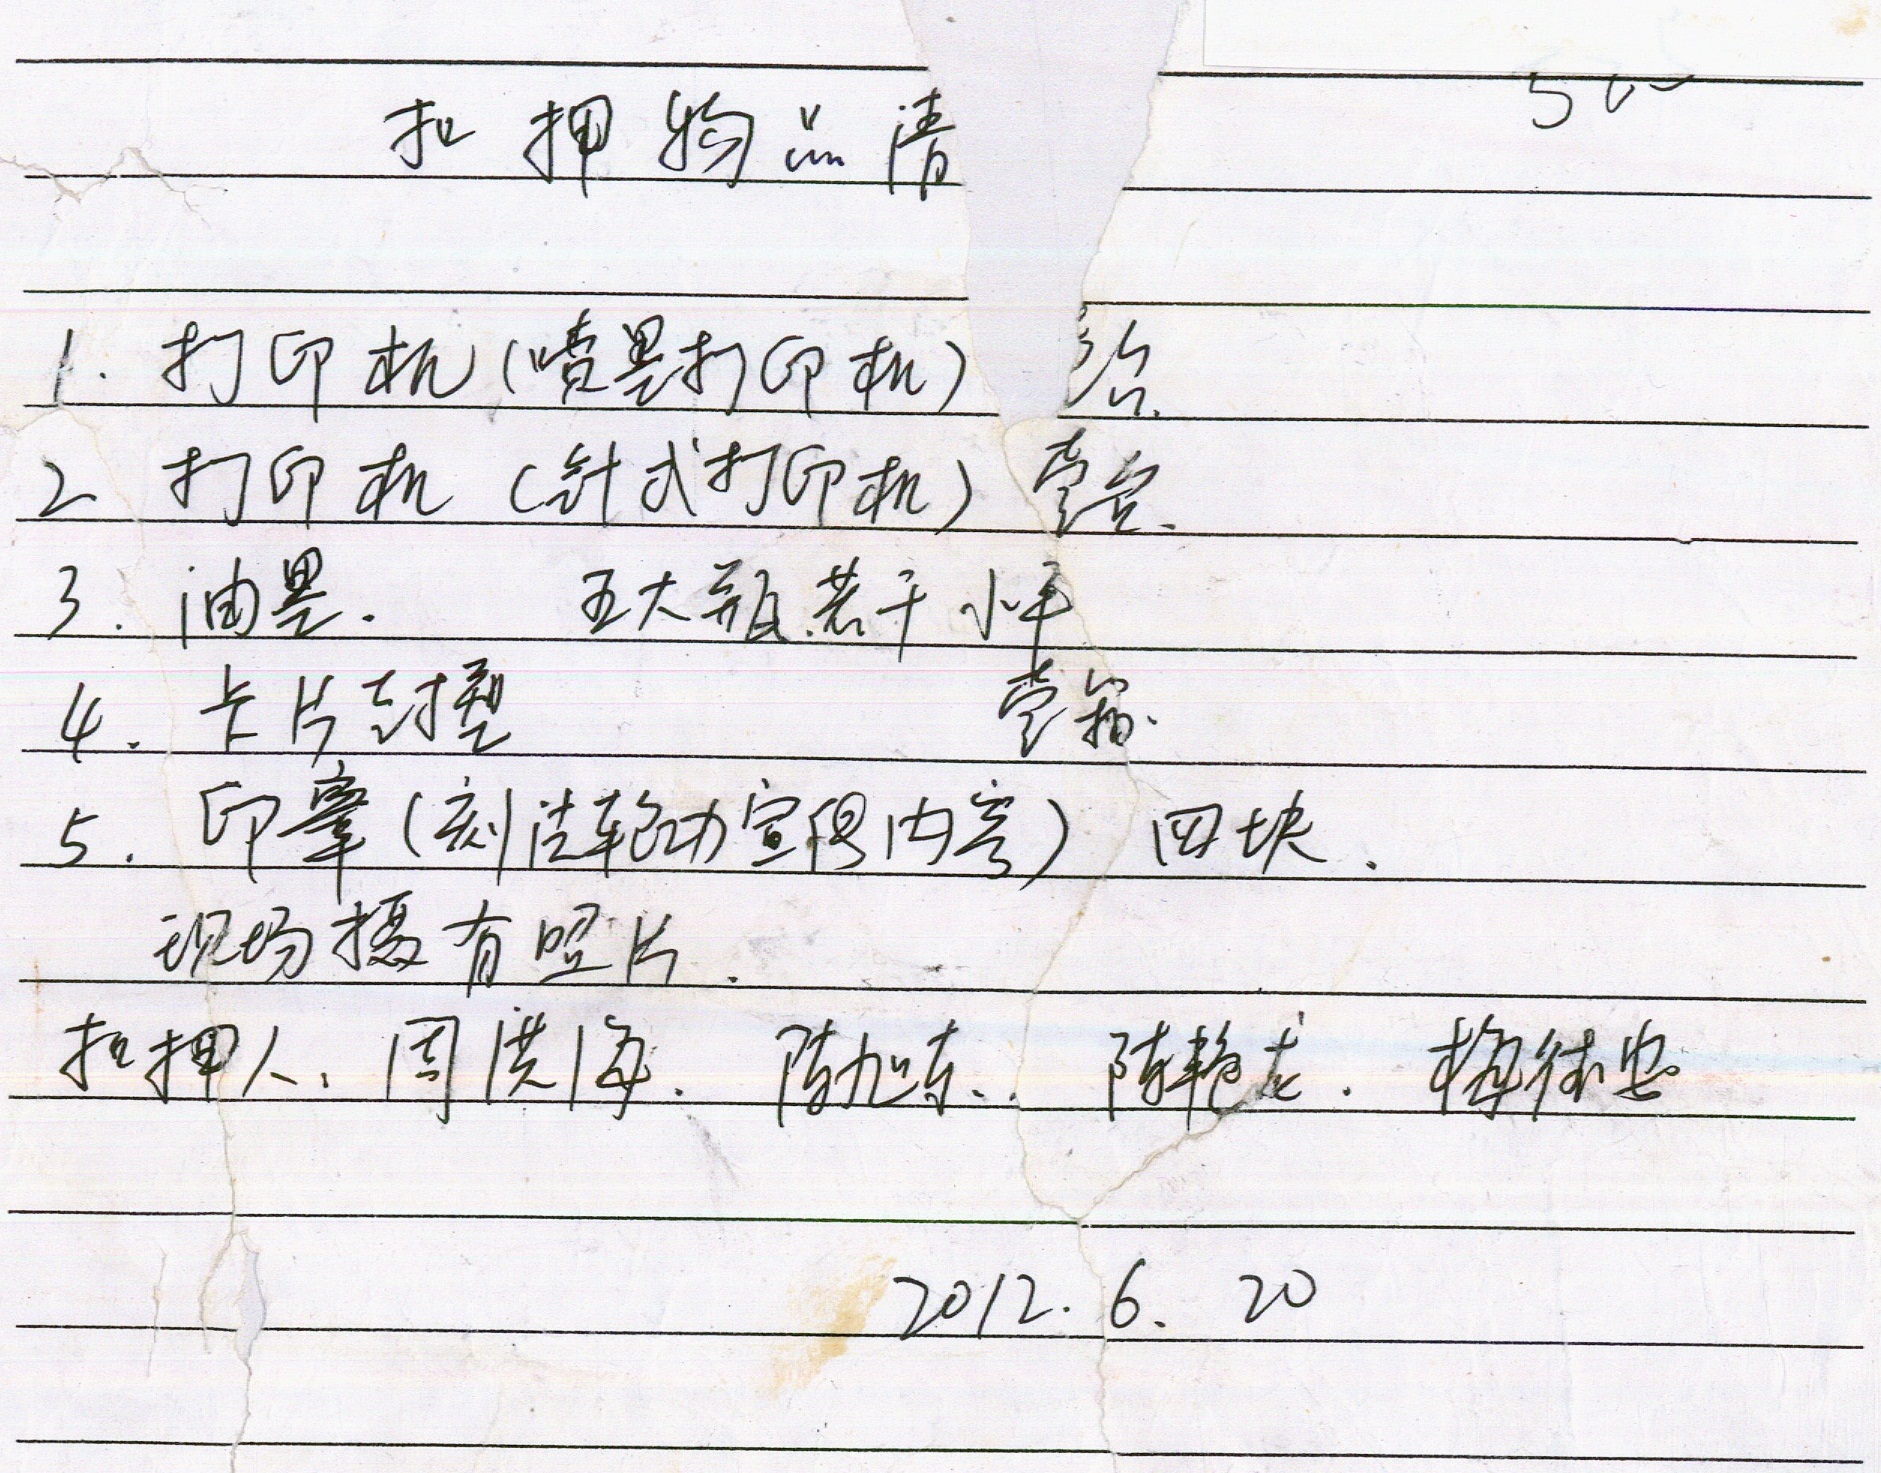 扣押物品清
1. 打印机(喷墨打印机) 台.
2 打印机 (针式打印机) 壹台.
3. 油墨. 五大瓶.若干小
4. 卡片封塑 壹箱.
5. 印章(刻法轮功宣传内容) 四块.
现场摄有照片.
扣押人. 周洪海. 陈旭东. 陈艳
2012. 6. 20